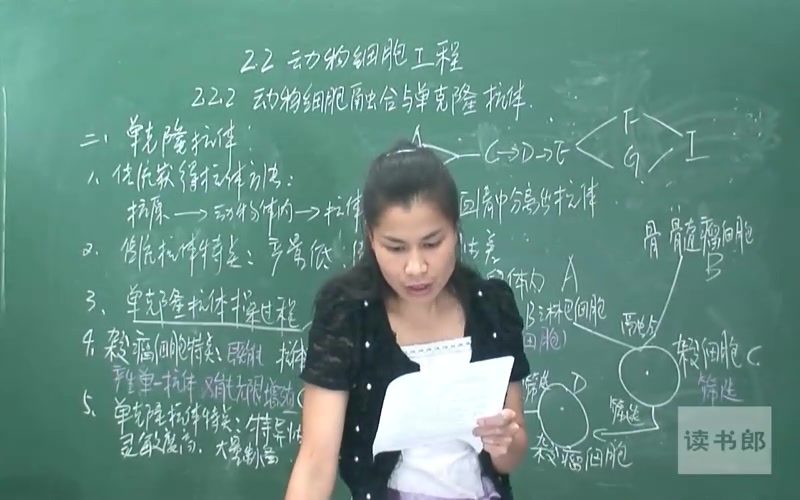 2.2 动物细胞工程
2.2.2 动物细胞融合与单克隆抗体
二、单克隆抗体
1、传统获得抗体方法:
抗原→动物体内→抗体 血清中分离出抗体
2、传统抗体特点:产量低
3、单克隆抗体操作过程
4、杂交瘤细胞特点:既能 抗体
产生单一抗体 又能无限增殖
5、单克隆抗体特点:特异性
灵敏度高. 大量制备
C→D→E
F
G
I
骨髓瘤细胞
B
体内 A
B淋巴细胞
细胞)
融合
杂交细胞 C
筛选
筛选
D
杂交瘤细胞
读书郎